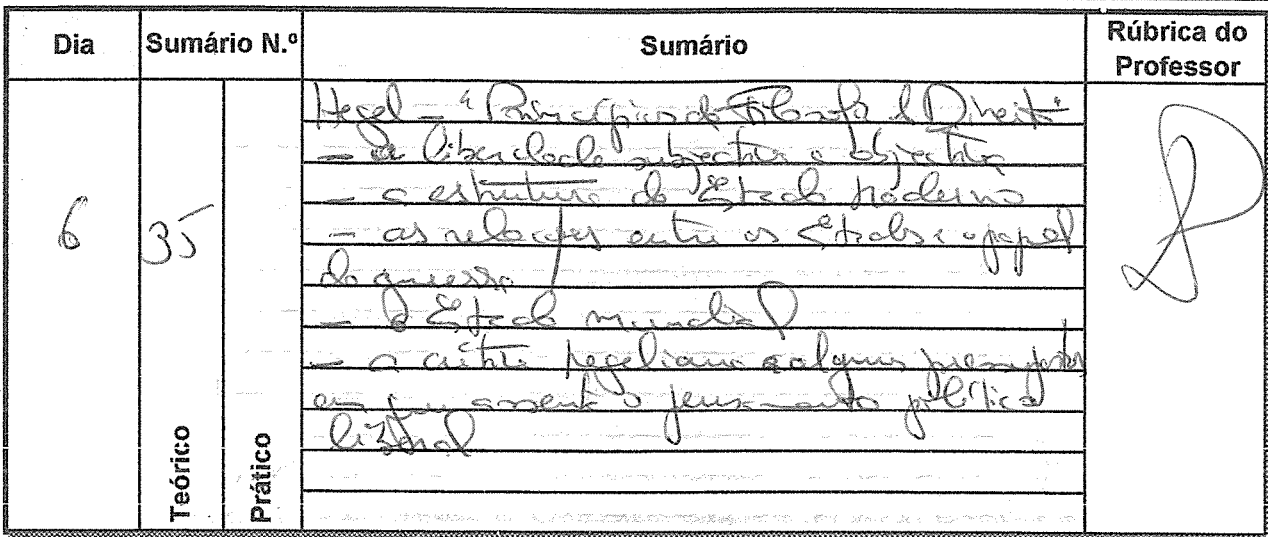 Dia Sumário N.º Sumário Rúbrica do Professor
6 35 Teórico Prático
Hegel - "Princípios da Filosofia do Direito"
- a liberdade subjectiva e objectiva
- a estrutura do Estado moderno
- as relações entre os Estados e o papel
da guerra
- o Estado mundial
- a crítica hegeliana a alguns pressupostos
em que assenta o pensamento político
liberal